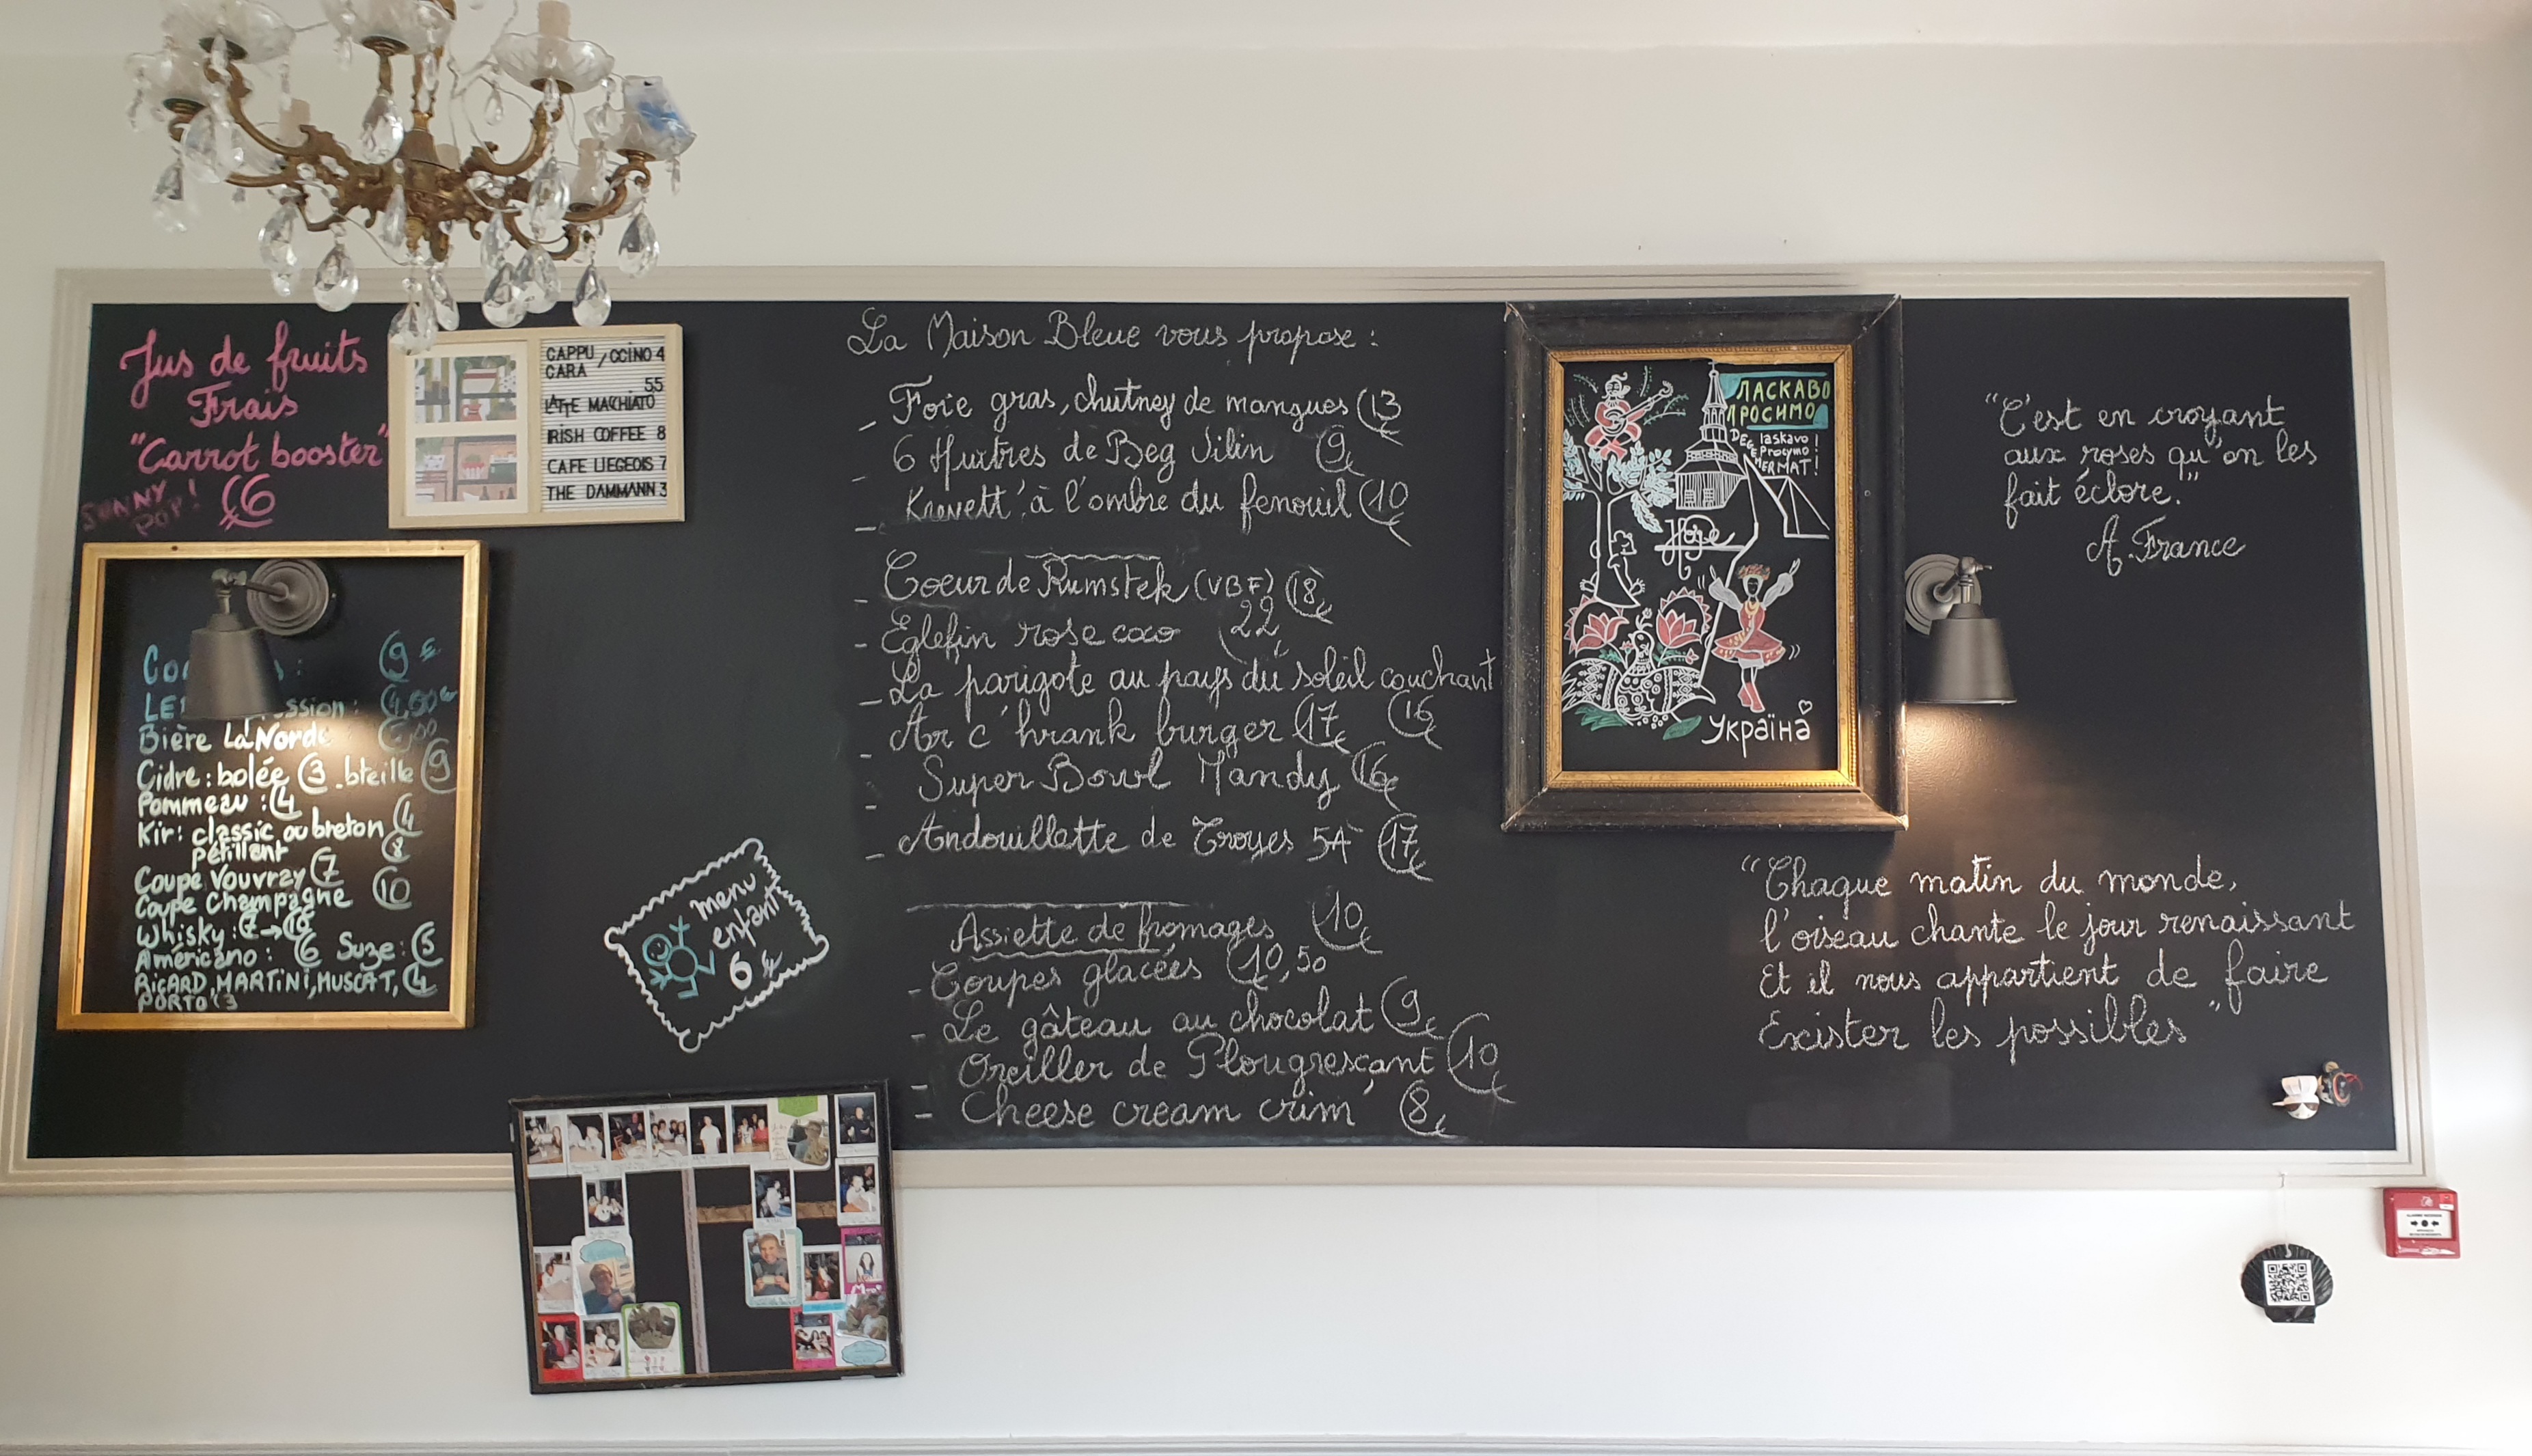 Jus de fruits
Frais
"Carrot booster"
SUNNY
POP! (6
CAPPU,CCINO 4
CARA
55
LATTE MACCHIATO
IRISH COFFEE 8
CAFE LIEGEOIS 7
THE DAMMANN 3
: (9€
Bière La Nord
Cidre: bolée (3 - bteille (9
Pommeau : (4
Kir: classic ou breton (4
pétillant
Coupe Vouvray (7
Coupe Champagne (10
Whisky:
Américano : (6 Suze: (5
RICARD, MARTINI, MUSCAT, (4
PORTO (3
menu
enfant
6€
La Maison Bleue vous propose :
- Foie gras, chutney de mangues (13€
- 6 Huîtres de Beg Vilin (9€
- Krevett', à l'ombre du fenouil (10€
- Coeur de Rumstek (VBF) (18€
- Eglefin rose coco (22€
- La parigote au pays du soleil couchant
(16€
- Ar c'hrank burger (17€
- Super Bowl Mandy (16€
- Andouillette de Troyes 5A (17€
Assiette de fromages (10€
- Coupes glacées (10,50
- Le gâteau au chocolat (9€
- Oreiller de Plougrescant (10€
- Cheese cream crim' (8€
ЛАСКАВО
ПРОСИМО
laskavo
Procymo
Hope
Україна
"C'est en croyant
aux roses qu'on les
fait éclore."
A. France
"Chaque matin du monde,
l'oiseau chante le jour renaissant
Et il nous appartient de faire
Exister les possibles"